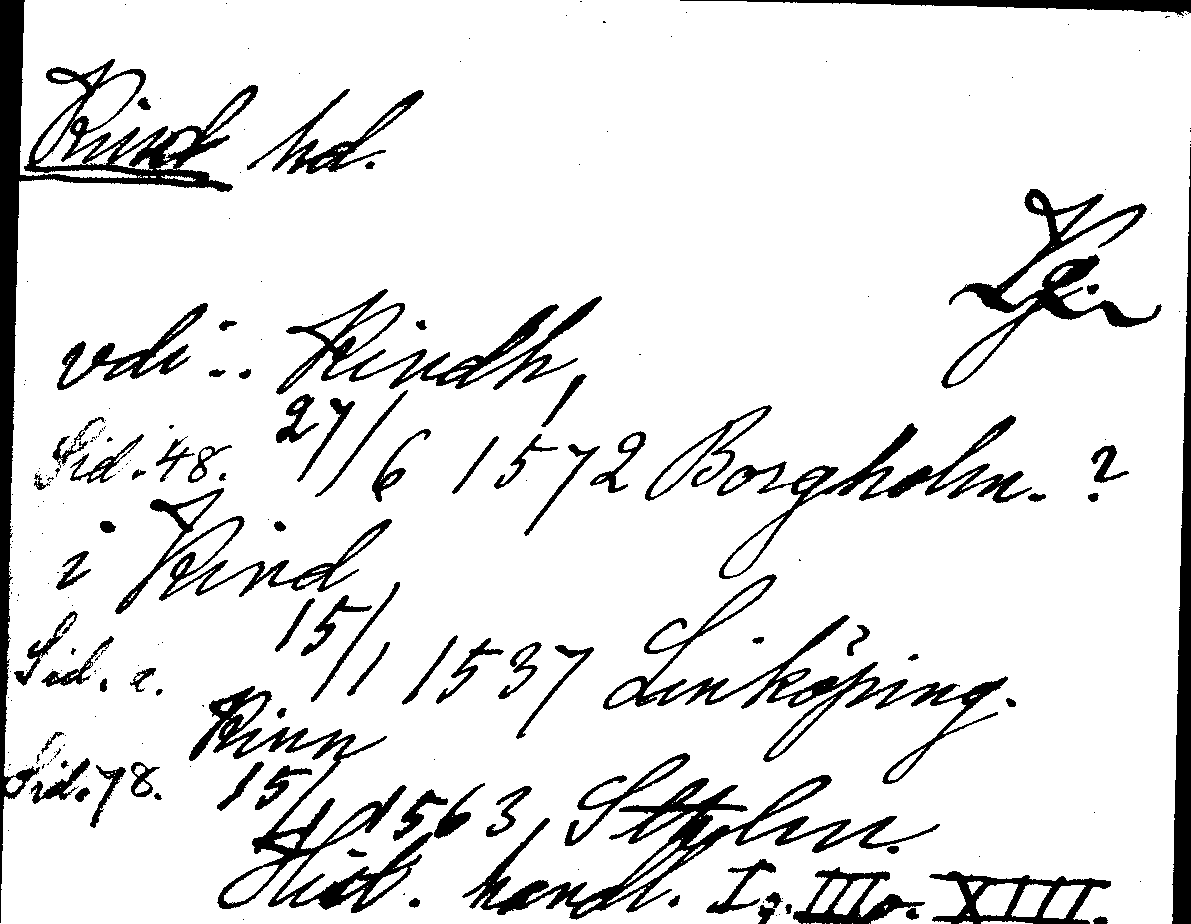 Kind hd.
Ög.
vdi .. Kindh,
Sid. 48. 27/6 1572 Borgholm. ?
i Kind
Sid. 2. 15/1 1537 Linköping.
Kinn
Sid. 78. 15/4 1563, Sthlm.
Hist. handl. I, III o. XIII.